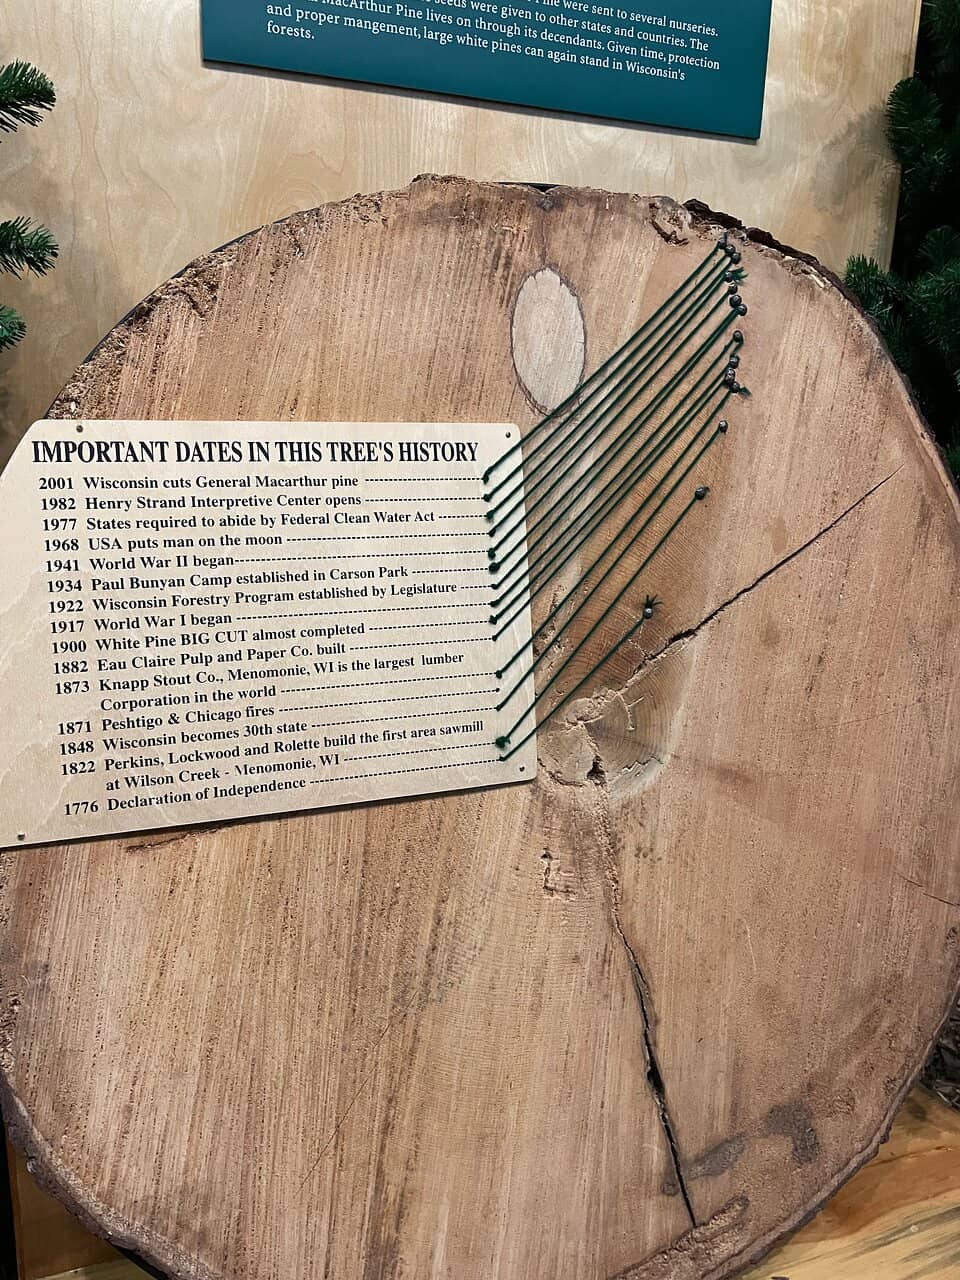 were sent to several nurseries.
seeds were given to other states and countries. The
MacArthur Pine lives on through its decendants. Given time, protection
and proper mangement, large white pines can again stand in Wisconsin's
forests.
IMPORTANT DATES IN THIS TREE'S HISTORY
2001 Wisconsin cuts General Macarthur pine
1982 Henry Strand Interpretive Center opens
1977 States required to abide by Federal Clean Water Act
1968 USA puts man on the moon
1941 World War II began
1934 Paul Bunyan Camp established in Carson Park
1922 Wisconsin Forestry Program established by Legislature
1917 World War I began
1900 White Pine BIG CUT almost completed
1882 Eau Claire Pulp and Paper Co. built
1873 Knapp Stout Co., Menomonie, WI is the largest lumber
Corporation in the world
1871 Peshtigo & Chicago fires
1848 Wisconsin becomes 30th state
1822 Perkins, Lockwood and Rolette build the first area sawmill
at Wilson Creek - Menomonie, WI
1776 Declaration of Independence